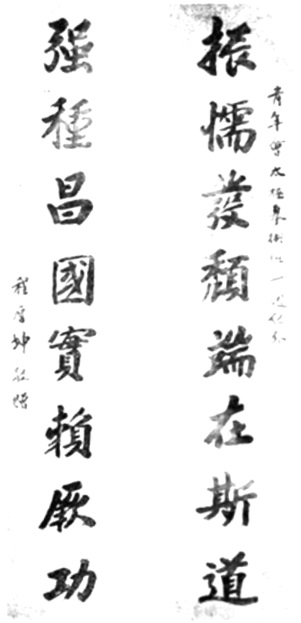 青年會太極拳
振懦發頹端在斯道
强種昌國實賴厥功
程 坤敬贈